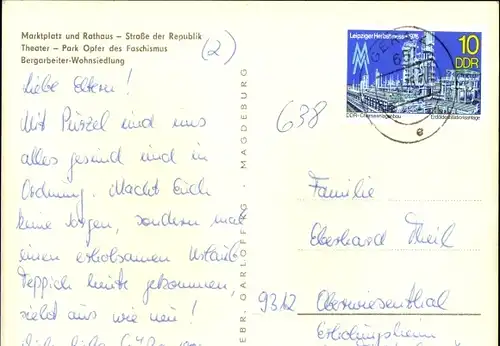 Marktplatz und Rathaus – Straße der Republik
Theater – Park Opfer des Faschismus
Bergarbeiter-Wohnsiedlung
(2)
Liebe Eltern!
Mit Pürzel und uns
alles gesund und in
Ordnung. Macht Euch
keine Sorgen, sondern mal
einen erholsamen Urlaub
Teppich heute gekommen,
sieht aus wie neu!
GEBR. GARLOFF KG · MAGDEBURG
Leipziger Herbstmesse 1976
10
DDR
DDR-Chemieanlagenbau
Erdöldestillationsanlage
GERA
65
e
638
Familie
Eberhard Theil
9312 Oberwiesenthal
Erholungsheim